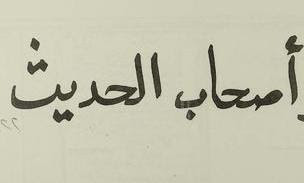 أصحاب الحديث